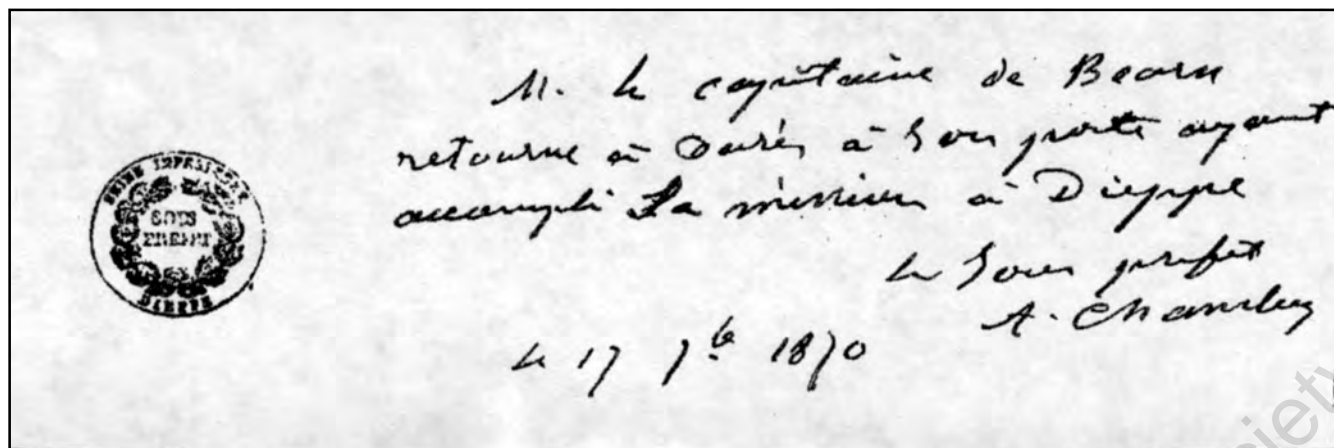 M. le capitaine de Bearn
retourne à Paris à son poste ayant
accompli Sa mission à Dieppe
le Sous préfet
A.
le 17 7bre 1870
SEINE INFERIEURE
SOUS
PREFET
DIEPPE